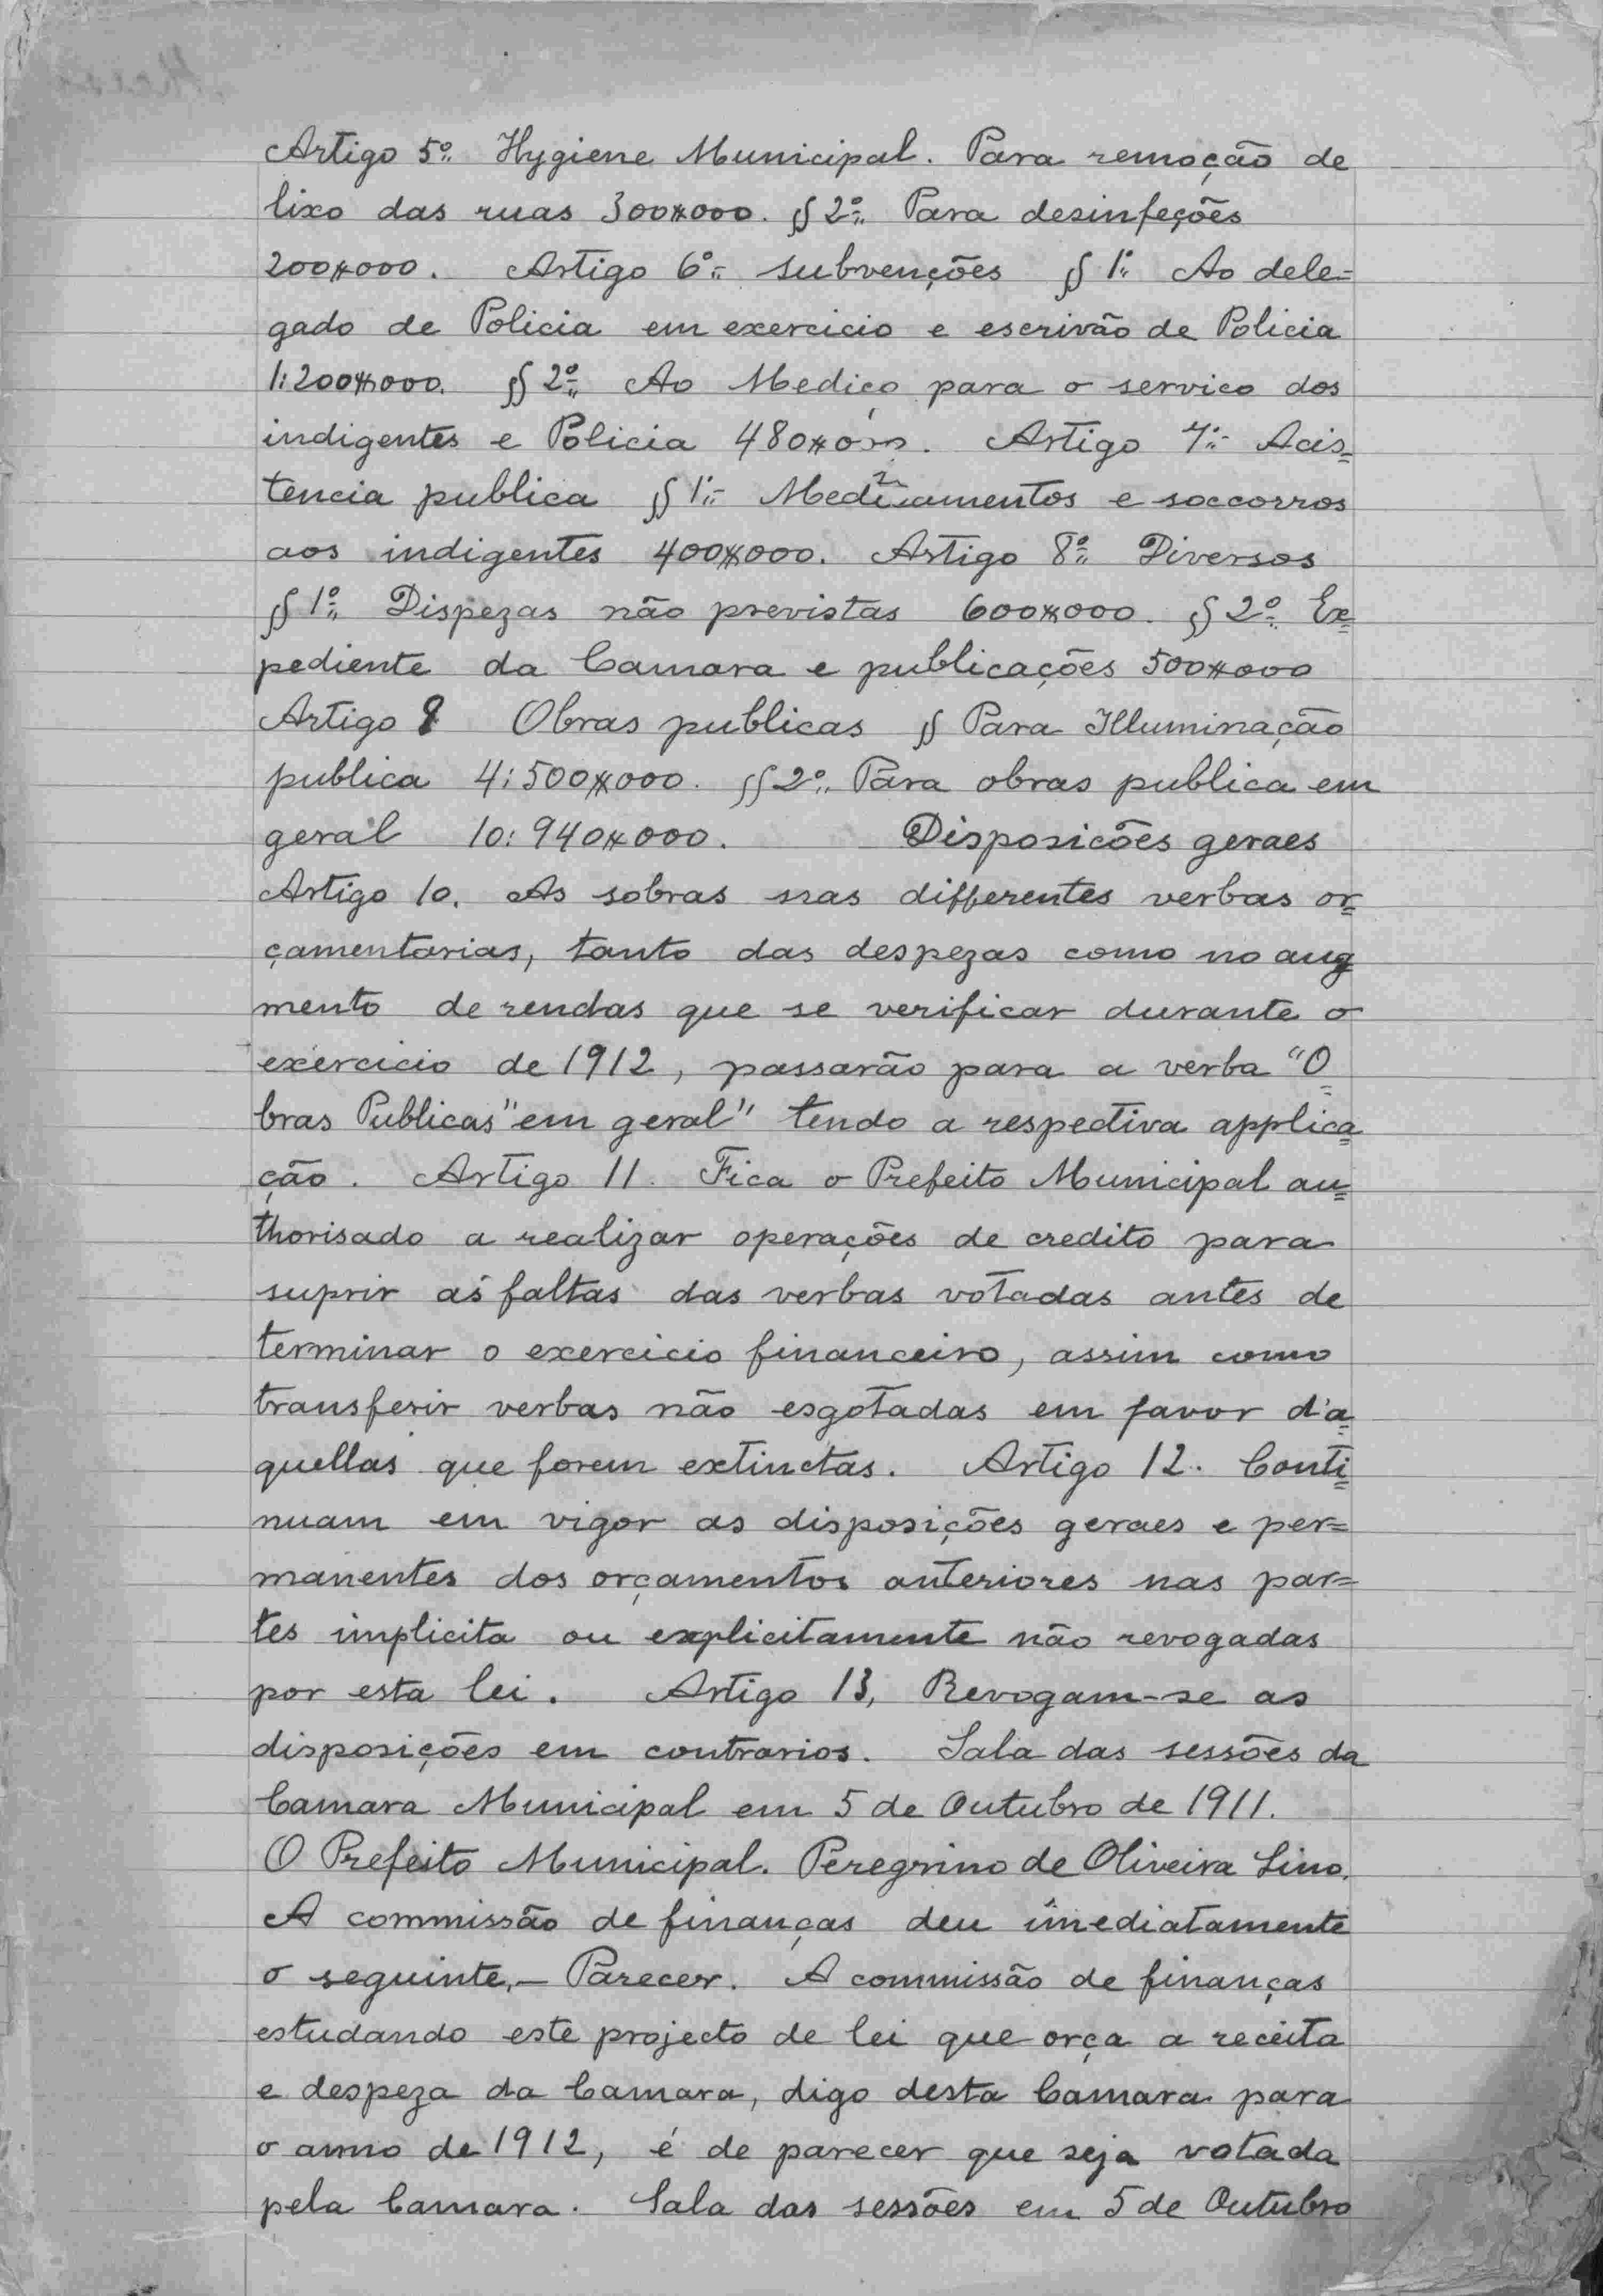 Artigo 5º Hygiene Municipal. Para remoção de
lixo das ruas 300$000. § 2º Para desinfeções
200$000. Artigo 6º subvenções § 1º Ao dele=
gado de Policia em exercicio e escrivão de Policia
1:200$000. § 2º Ao Medico para o servico dos
indigentes e Policia 480$000. Artigo 7º Acis=
tencia publica § 1º Medicamentos e soccorros
aos indigentes 400$000. Artigo 8º Diversos
§ 1º Dispezas não previstas 600$000. § 2º Ex=
pediente da Camara e publicações 500$000
Artigo 9 Obras publicas § Para Illuminação
publica 4:500$000. § 2º Para obras publica em
geral 10:940$000. Disposicões geraes
Artigo 10. As sobras nas differentes verbas or=
çamentarias, tanto das despezas como no aug
mento de rendas que se verificar durante o
exercicio de 1912, passarão para a verba "O=
bras Publicas" em geral" tendo a respectiva applica=
ção. Artigo 11. Fica o Prefeito Municipal au=
thorisado a realizar operações de credito para
suprir as faltas das verbas votadas antes de
terminar o exercicio financeiro, assim como
transferir verbas não esgotadas em favor d'a=
quellas que forem extinctas. Artigo 12. Conti=
nuam em vigor as disposições geraes e per=
manentes dos orçamentos anteriores nas par=
tes implicita ou explicitamente não revogadas
por esta lei. Artigo 13, Revogam-se as
disposições em contrarios. Sala das sessões da
Camara Municipal em 5 de Outubro de 1911.
O Prefeito Municipal. Peregrino de Oliveira Lino.
A commissão de finanças deu imediatamente
o seguinte,- Parecer. A commissão de finanças
estudando este projecto de lei que orça a receita
e despeza da Camara, digo desta Camara para
o anno de 1912, é de parecer que seja votada
pela Camara. Sala das sessões em 5 de Outubro